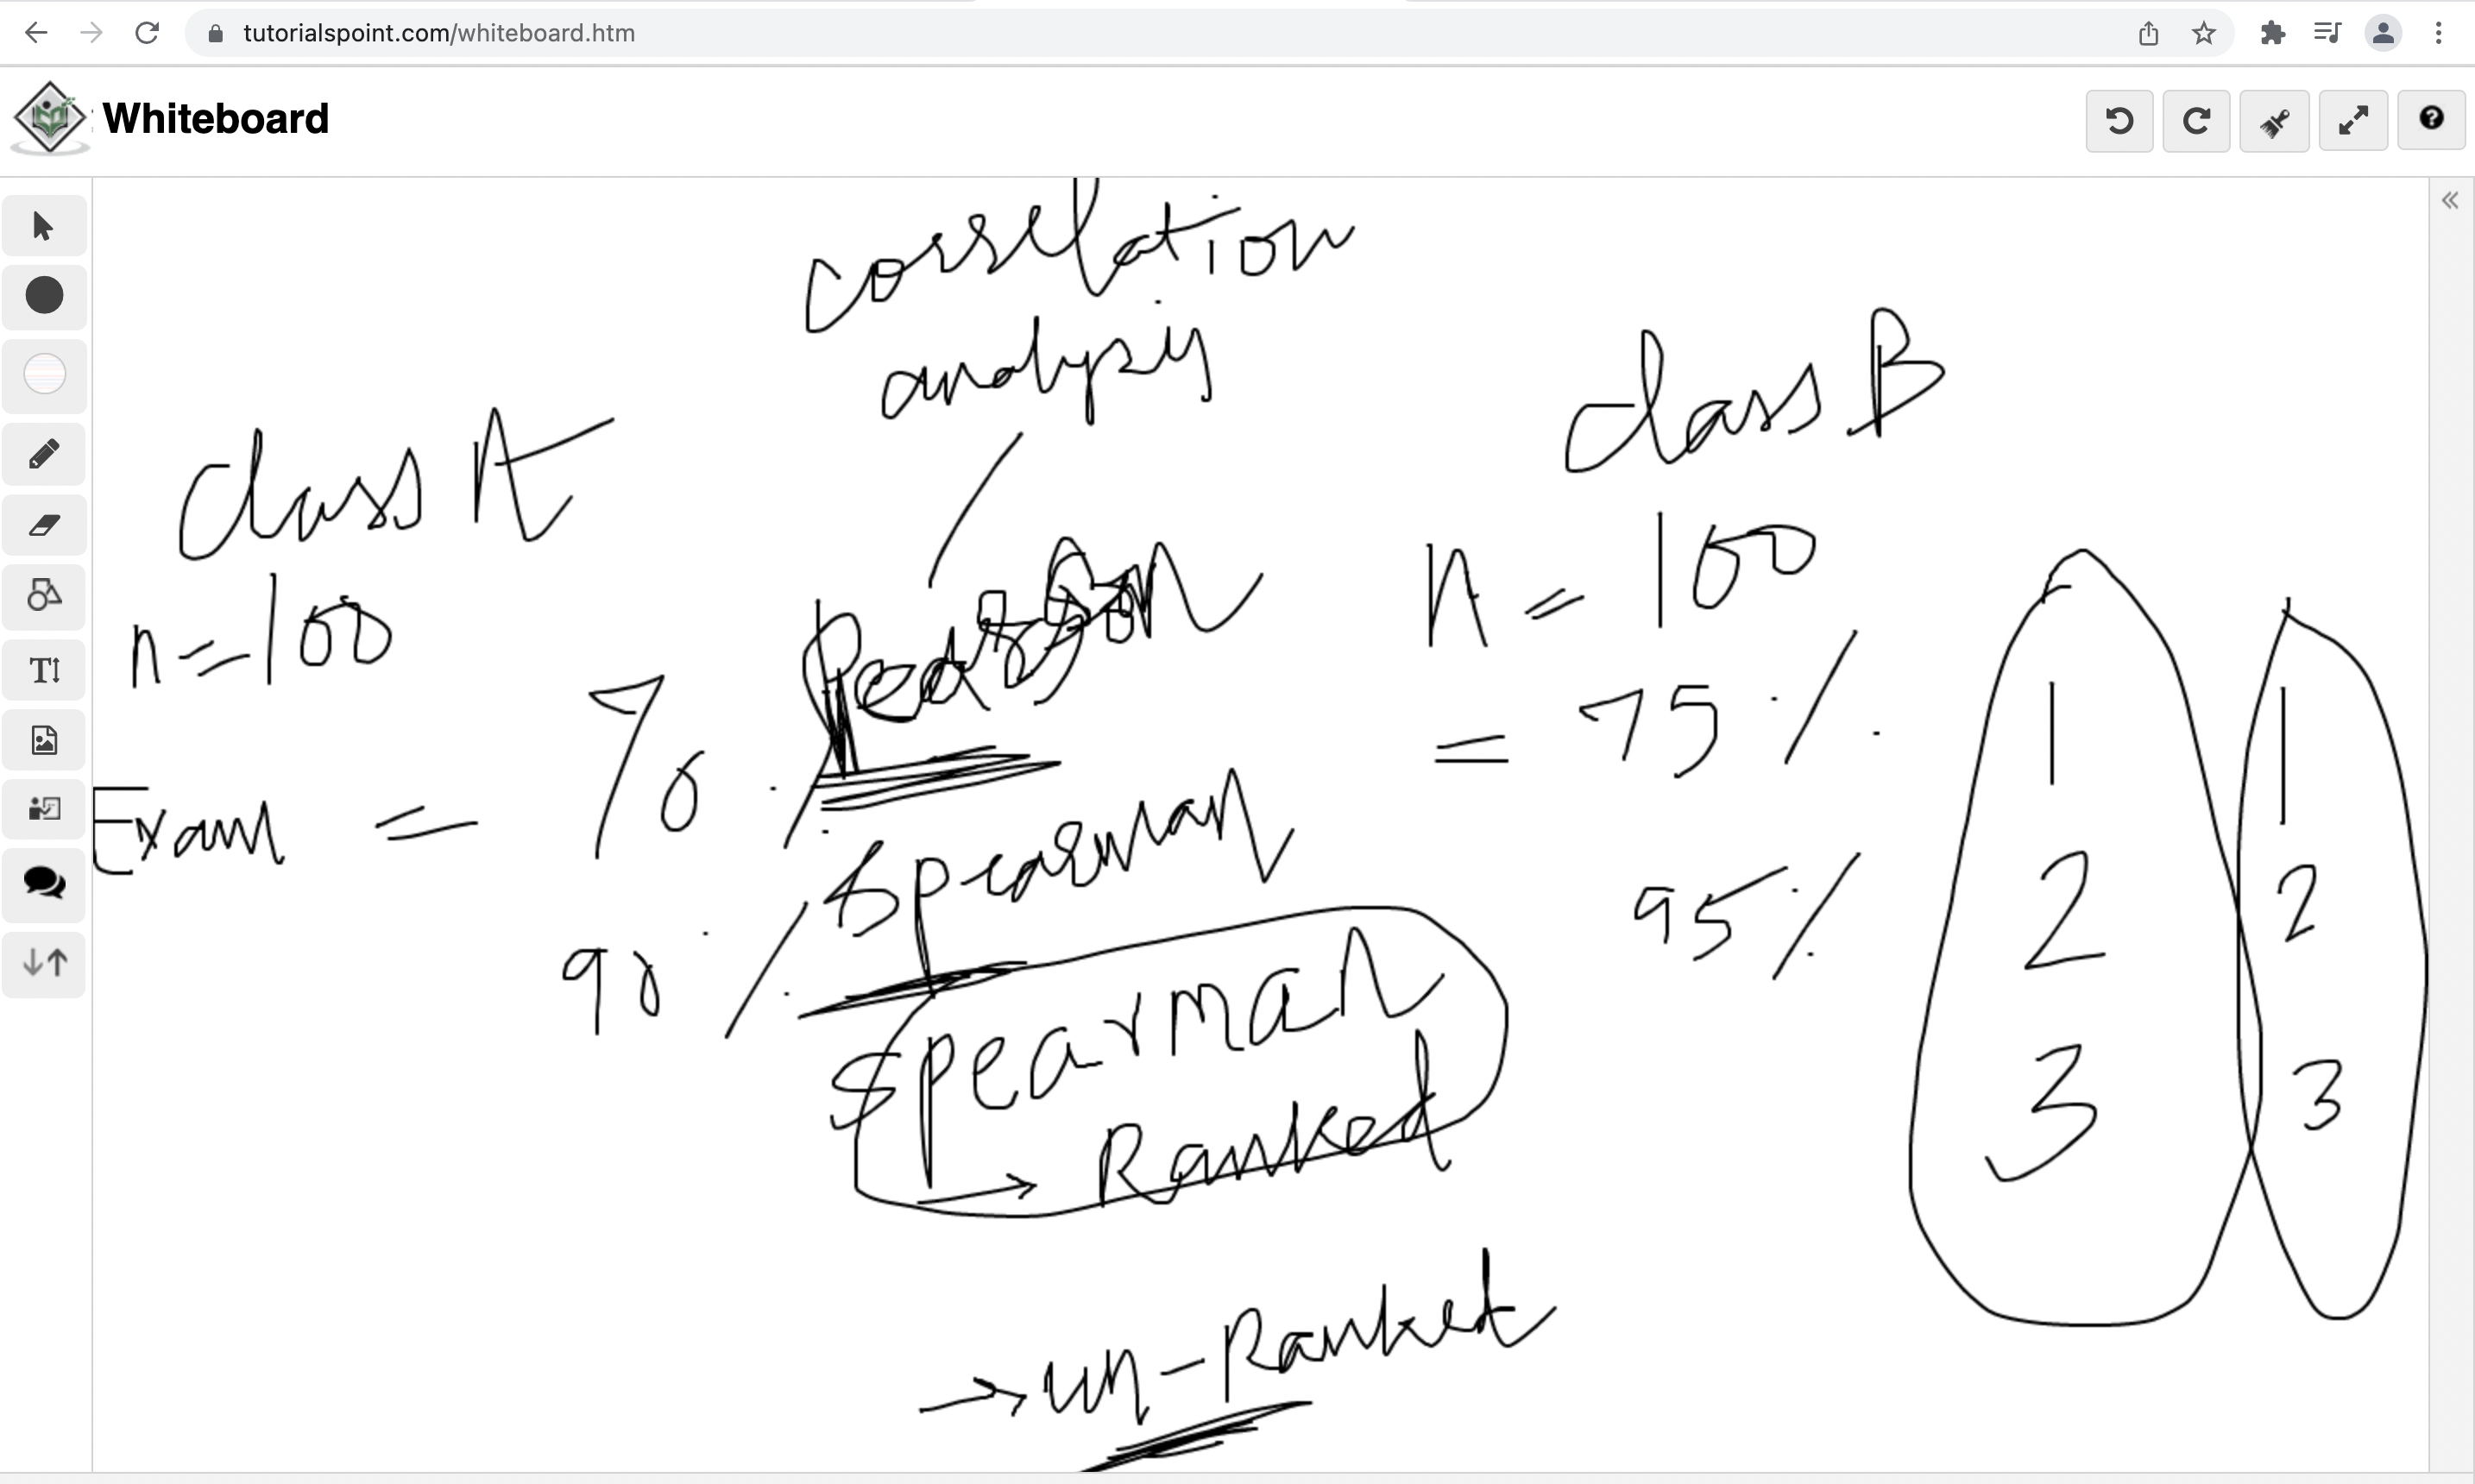 tutorialspoint.com/whiteboard.htm
Whiteboard
correlation
analysis
class A
n=100
Exam = 70 %
90 %
Pearson
Spearman
Spearman
→ Ranked
→ un-Ranket
class B
n = 100
= 75 %
95 %
1 1
2 2
3 3